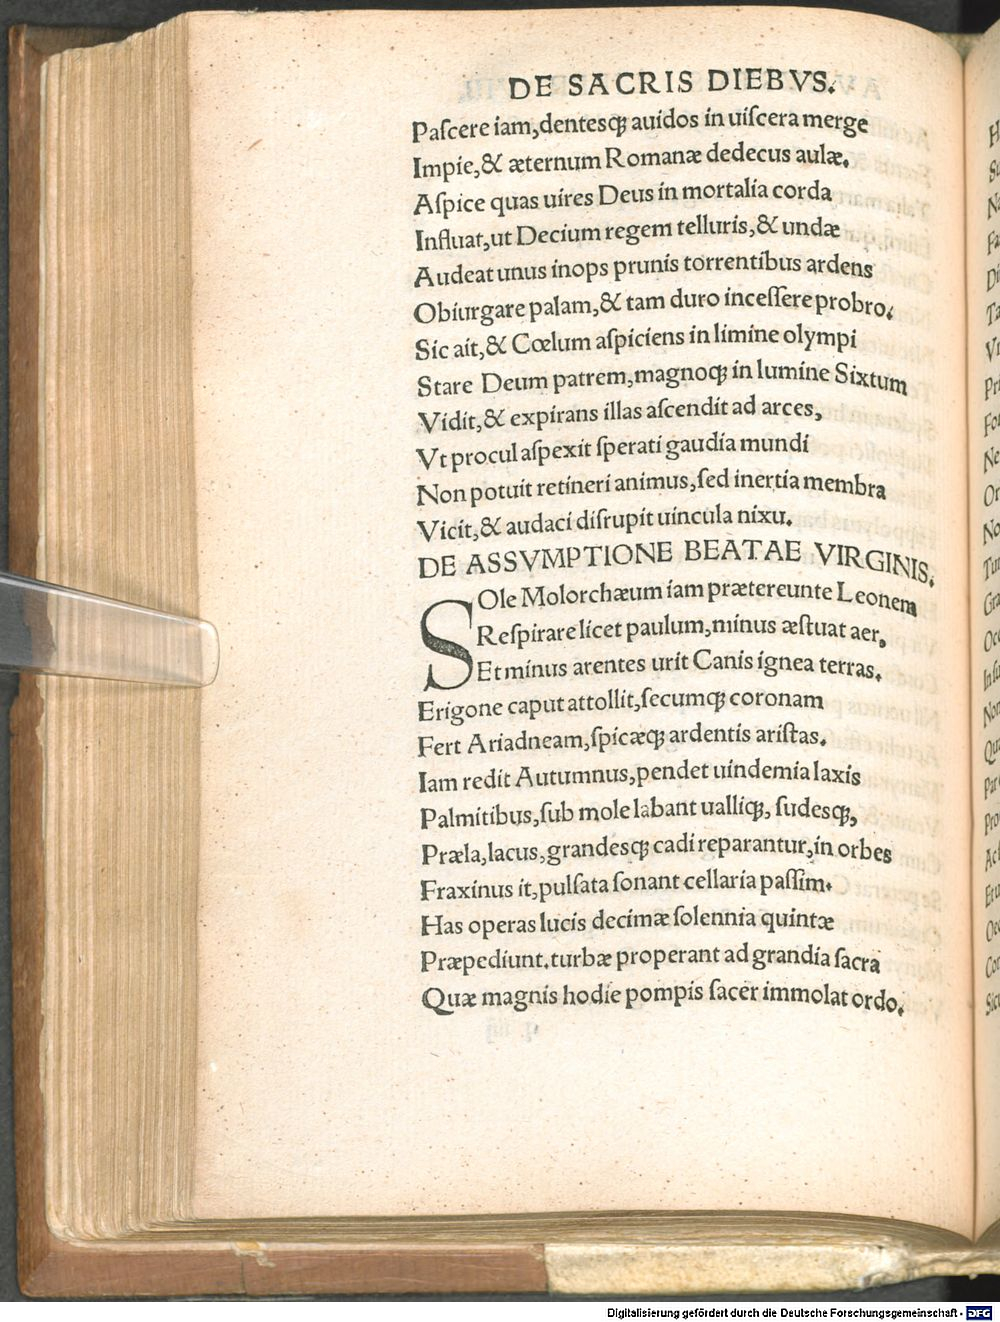 DE SACRIS DIEBVS.
Paſcere iam,dentesqꝫ auidos in uiſcera merge
Impie,& æternum Romanæ dedecus aulæ.
Aſpice quas uires Deus in mortalia corda
Influat,ut Decium regem telluris,& undæ
Audeat unus inops prunis torrentibus ardens
Obiurgare palam,& tam duro inceſſere probro.
Sic ait,& Cœlum aſpiciens in limine olympi
Stare Deum patrem,magnoqꝫ in lumine Sixtum
Vidit,& expirans illas aſcendit ad arces,
Vt procul aſpexit ſperati gaudia mundi
Non potuit retineri animus,ſed inertia membra
Vicit,& audaci diſrupit uincula nixu.
DE ASSVMPTIONE BEATAE VIRGINIS.
SOle Molorchæum iam prætereunte Leonem
Reſpirare licet paulum,minus æſtuat aer,
Et minus arentes urit Canis ignea terras.
Erigone caput attollit,ſecumqꝫ coronam
Fert Ariadneam,ſpicæqꝫ ardentis ariſtas.
Iam redit Autumnus,pendet uindemia laxis
Palmitibus,ſub mole labant ualliqꝫ, ſudesqꝫ,
Præla,lacus,grandesqꝫ cadi reparantur,in orbes
Fraxinus it,pulſata ſonant cellaria paſſim.
Has operas lucis decimæ ſolennia quintæ
Præpediunt.turbæ properant ad grandia ſacra
Quæ magnis hodie pompis ſacer immolat ordo.
Digitalisierung gefördert durch die Deutsche Forschungsgemeinschaft - DFG